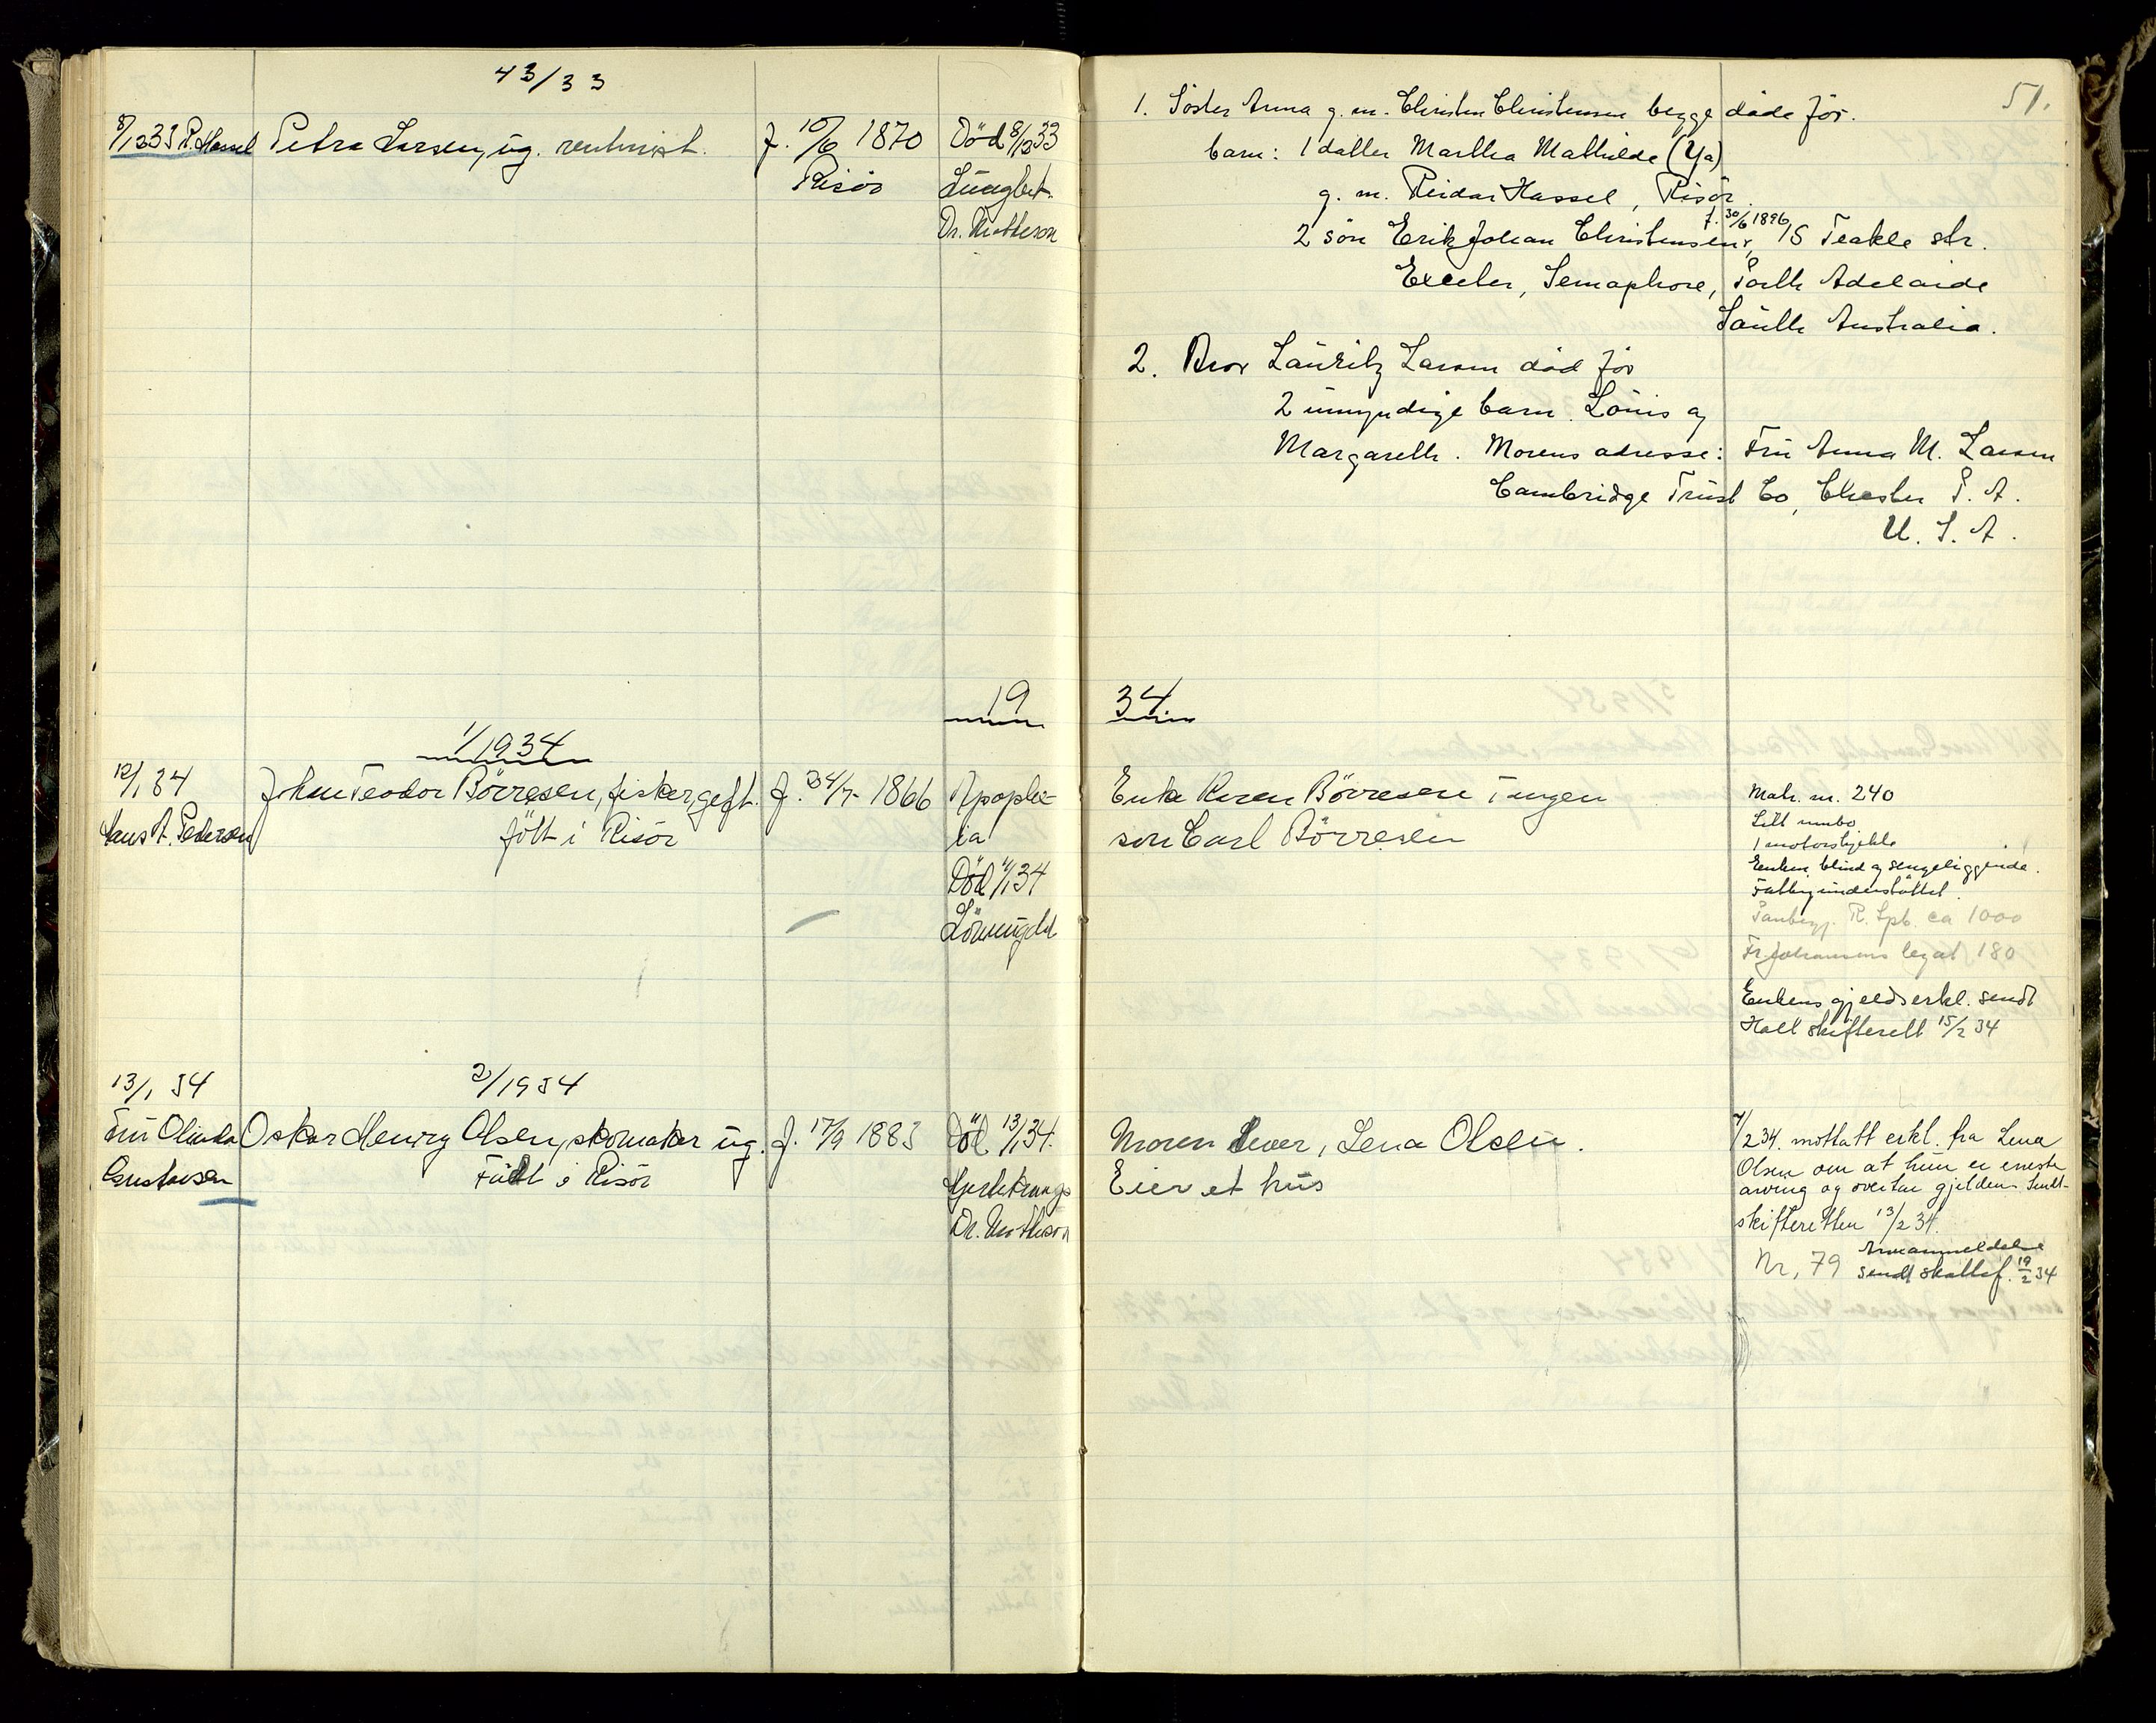 43/33
8/12 33 R. Hassel Petra Larsen, ug. rentenist. f. 10/6 1870 Död 8/12 33
Risör Lungbet.
Dr. Matheson
51.
1. Söster Anna g. m. Christen Christensen begge døde før.
barn: 1 datter Martha Mathilde (Ya)
g. m. Reidar Hassel, Risör.
f. 30/6 1896
2 sön Erik Johan Christensen, 15 Teakle str.
Exeter, Semaphore, Porth Adelaide
South Australia.
2. Bror Lauritz Larsen död för
2 umyndige barn. Louis og
Margareth. Morens adresse: Fru Anna M. Larsen
Cambridge Trust Co, Chester P. A.
U. S. A.
19 34
1/1934
12/1 34 Johan Teodor Börresen, fisker, gift. f. 24/7 1866 Apoplex-
Hans A. Pedersen fött i Risör ia
Död 11/1 34
Enke Karen Börresen Tangen
son Carl Börresen
Matr. nr. 240
Litt innbo
1 motorsjekte
Enken blind og sengeliggende.
Fattigunderstöttet.
R. Spb. ca 1000
Fr. Johansens legat 180
Enkens gjeldserkl. sendt
Holt skifterett 15/2 34
13/1 34 2/1934
Fru Olinda Oskar Henry Olsen, skomaker ug. f. 17/9 1883 Död 13/1 34.
Gustavsen Födt i Risör
Dr. Mathison
Moren lever, Lena Olsen.
Eier et hus
7/2 34. mottatt erkl. fra Lena
Olsen om at hun er eneste
arving og overtar gjelden. Sendt
skifteretten 13/2 34.
Nr. 79 Arveanmeldelse
sendt skattef. 19/2 34